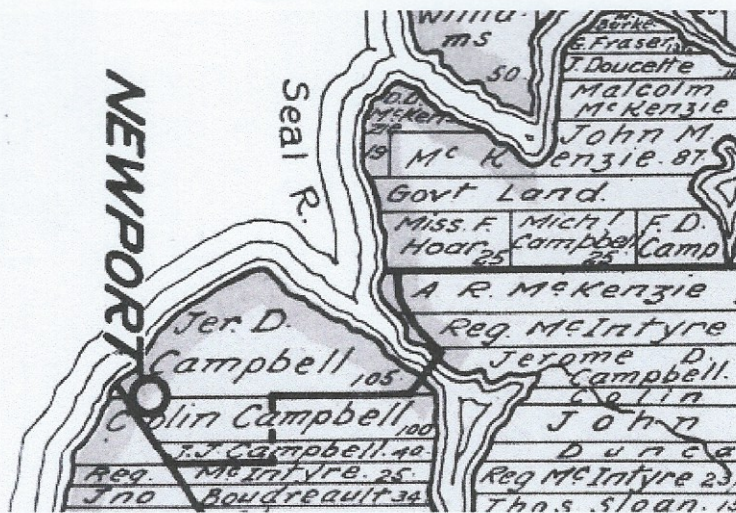 Willia-
ms
50.
Burke.
G. Fraser
J. Doucette
Malcolm
McKenzie
D.D.
McKen-
zie
19
John M.
McKenzie. 87.
Govt Land.
Miss. F.
Hoar 25
Mich'l
Campbell
25
F. D.
Camp
Seal R.
NEWPORT
A R. McKenzie
Reg. McIntyre
Jerome D.
Campbell.
Colin
John
Dunca
Reg McIntyre 23
Thos. Sloan.
Jer. D.
Campbell 105.
Colin Campbell 100
J.J. Campbell. 40.
Reg. McIntyre. 25.
Jno Boudreault 34